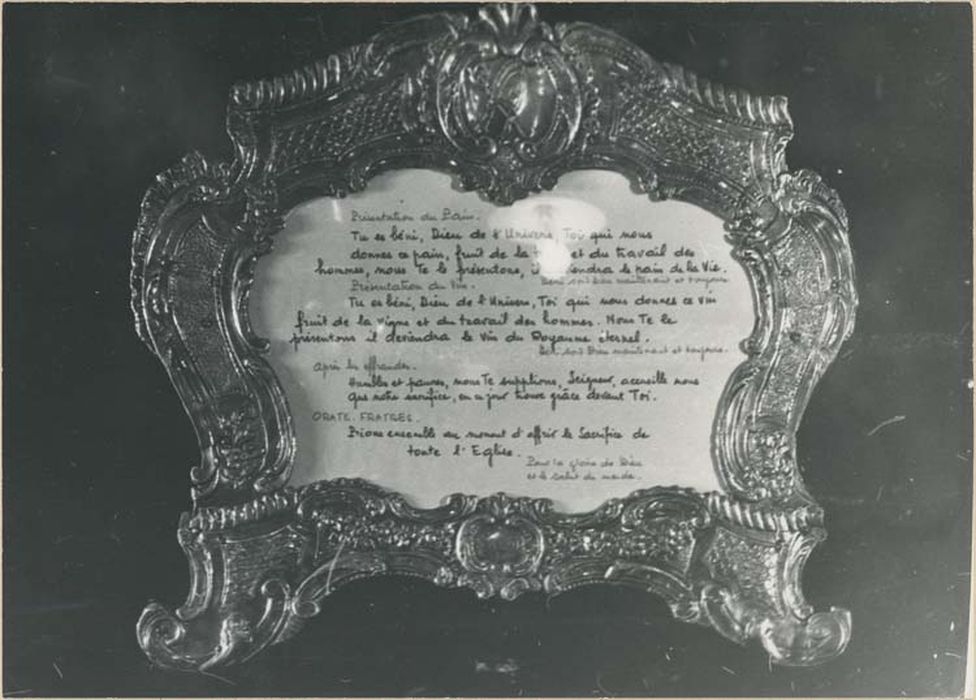 Présentation du Pain.
Tu es béni, Dieu de l'Univers, Toi qui nous
donnes ce pain, fruit de la et du travail des
hommes, nous Te le présentons, il deviendra le pain de la Vie.
Béni soit Dieu maintenant et toujours
Présentation du Vin.
Tu es béni, Dieu de l'Univers, Toi qui nous donnes ce vin
fruit de la vigne et du travail des hommes. Nous Te le
présentons il deviendra le vin du Royaume éternel.
Béni soit Dieu maintenant et toujours.
Après les offrandes.
Humbles et pauvres, nous Te supplions, Seigneur, accueille nous
que notre sacrifice, en ce jour trouve grâce devant Toi.
ORATE. FRATRES.
Prions ensemble au moment d'offrir le Sacrifice de
toute l'Eglise.
Pour la gloire de Dieu
et le salut du monde.